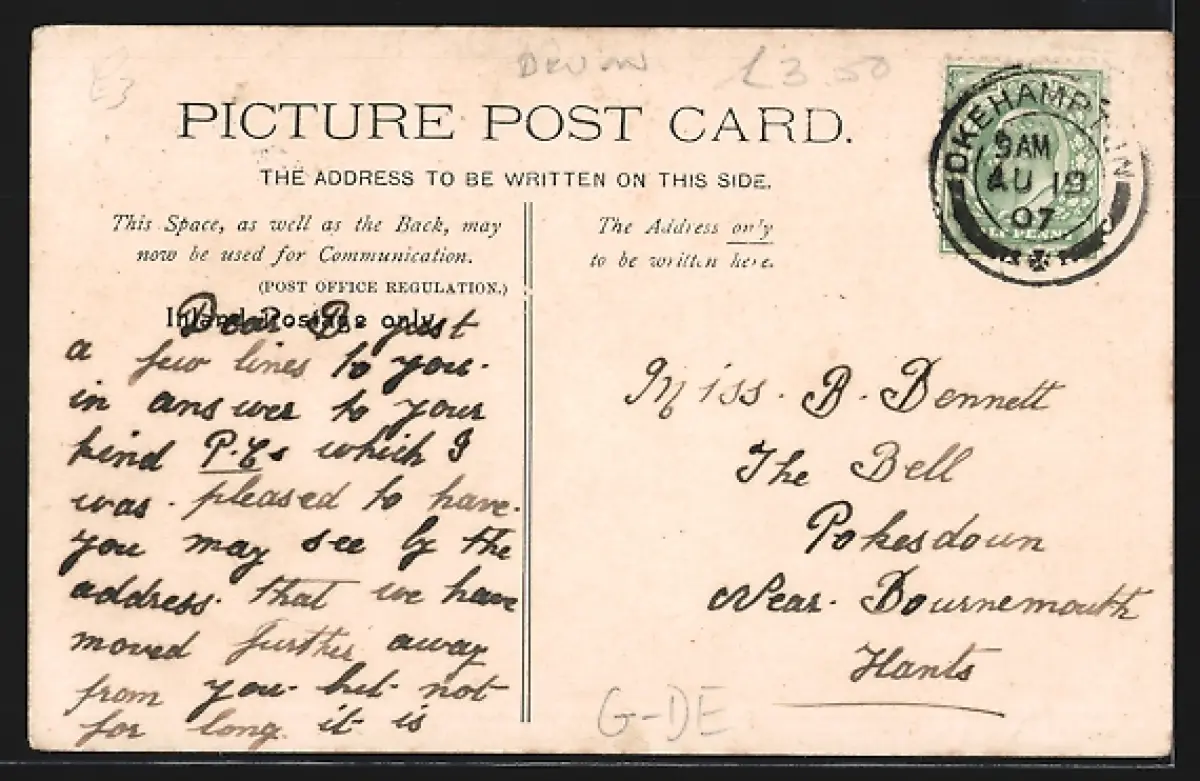 E3
DEVON £3.50
PICTURE POST CARD.
THE ADDRESS TO BE WRITTEN ON THIS SIDE.
This Space, as well as the Back, may
now be used for Communication.
(POST OFFICE REGULATION.)
Inland Postage only.
Dear B. just
a few lines to you.
in answer to your
kind P.Cs which I
was. pleased to have.
you may see by the
address. that we have
moved further away
from you. but. not
for long. it is
The Address only
to be written here.
OKEHAMPTON
9 AM
AU 19
07
Miss. B. Bennett
The Bell
Pokesdown
Near. Bournemouth
Hants
G-DE